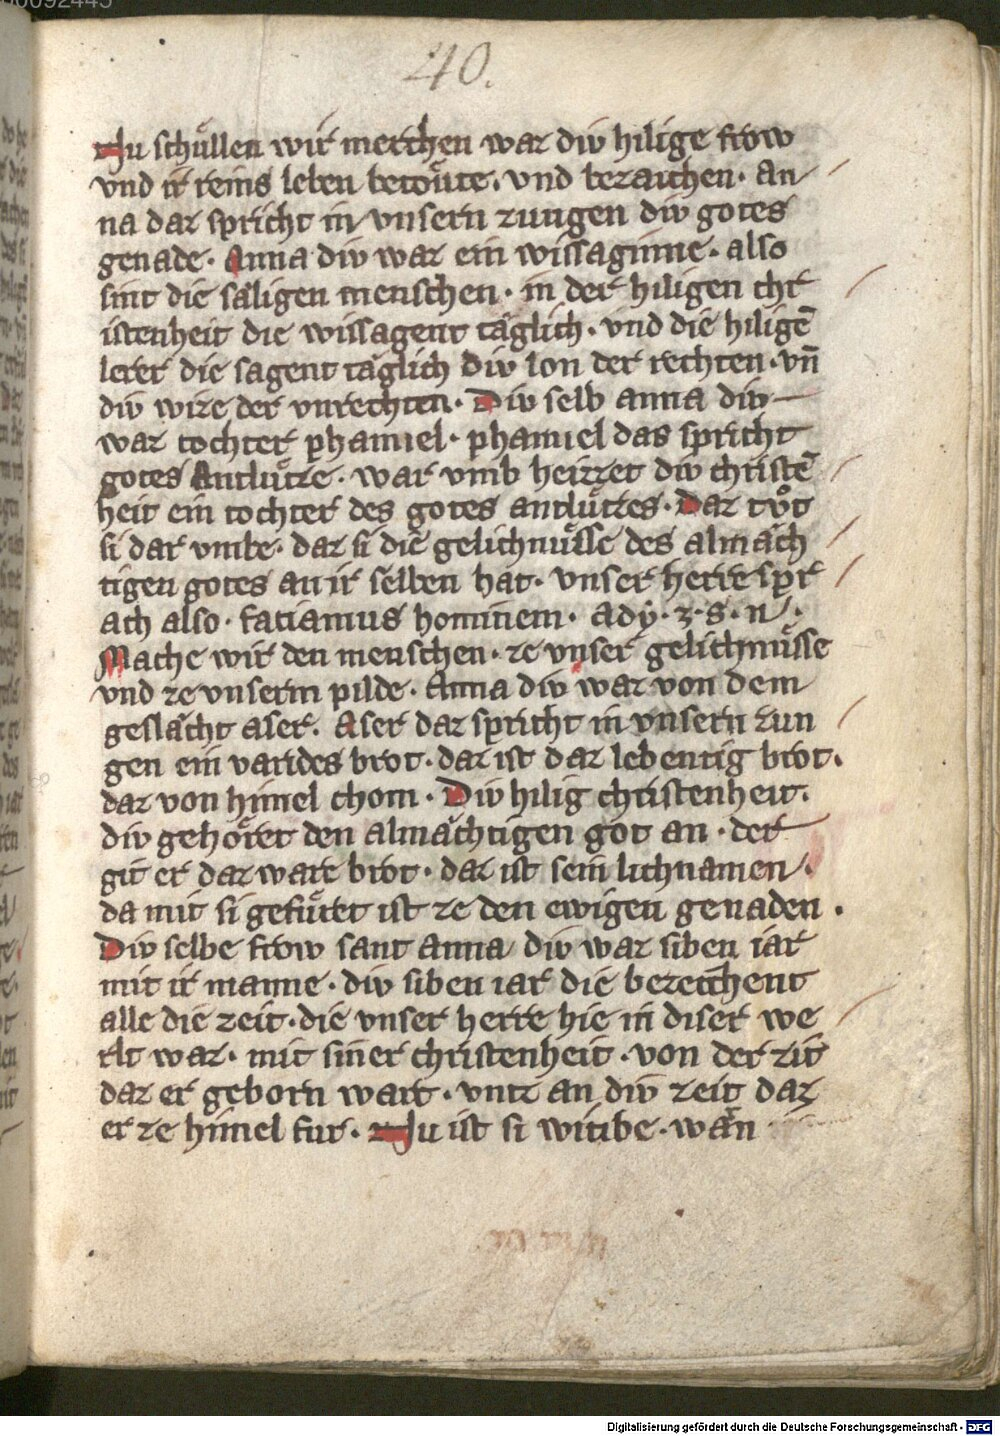 40.
Nu schuͤllen wir merchen waz div hilige frow
vnd ir reins leben betoͮte. vnd bezaichen. An
na daz spricht in vnsern zungen div gotes
genade. Anna div waz ein wissaginne. also
sint die saͤligen menschen. in der hiligen chr
istenheit die wissagent taͤglich. vnd die hiligē
lerer die sagent taͤglich div lon der rechten. vn̄
div wize der vnrechten. Div selb anna div
waz tochter phanuel. phanuel das spricht
gotes Antluͤtze. war vmb heizzet div christē
heit ein tochter des gotes antluͤtzes. Daz tvͦt
si dar vmbe. daz si die gelichnuͤsse des almaͤch
tigen gotes an ir selben hat. vnser herre spr
ach also. faciamus hominem. ady. z. s. n.
Mache wir den menschen. ze vnser gelichnuͤsse
vnd ze vnserm pilde. Anna div waz von dem
geslaͤcht aser. Aser daz spricht in vnsern zun
gen ein vaizdes brot. daz ist daz lebentig brot.
daz von himel chom. Div hilig christenheit.
div gehoͤret den almaͤchtigen got an. der
git er daz ware brot. daz ist sein lichnamen.
da mit si gefuͤret ist ze den ewigen genaden.
Div selbe frow sant anna div waz siben iar
mit ir manne. div siben iar die bezeichent
alle die zeit. die vnser herre hie in diser we
rlt waz. mit siner christenheit. von der zit
daz er geborn wart. vntz an div zeit daz
er ze himel fur. Nu ist si witibe. wan
Digitalisierung gefördert durch die Deutsche Forschungsgemeinschaft - DFG